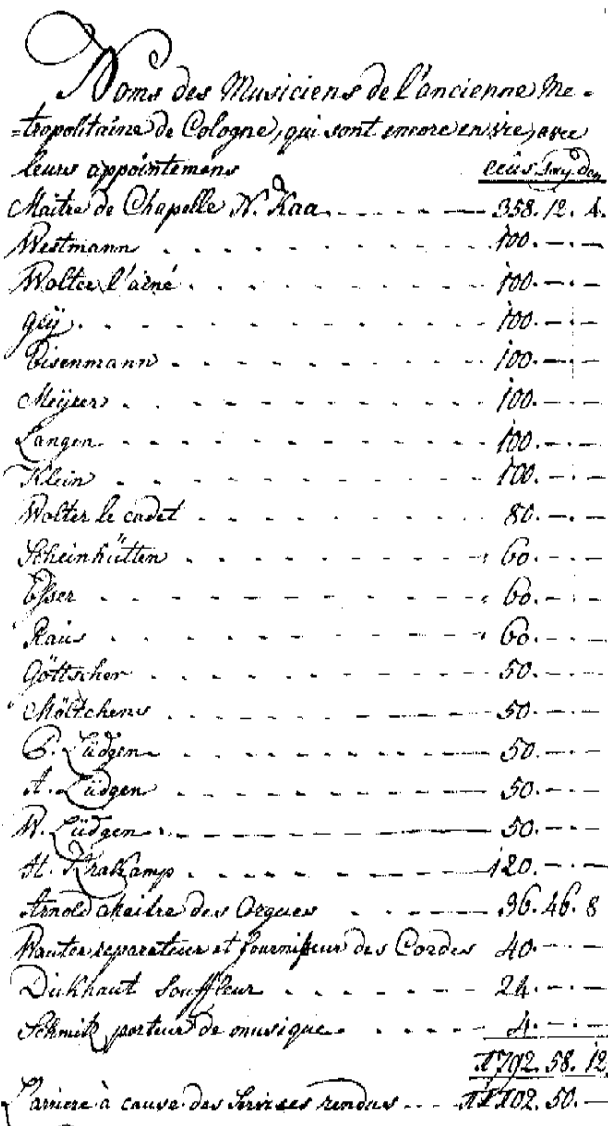 Noms des Musiciens de l'ancienne Me-
=tropolitaine de Cologne, qui sont encore en vie, avec
leurs appointemens ecus.
Maitre de Chapelle N. Kaa - - - - 358. 12. 4.
Westmann - - - - 100. - . -
Wolter l'ainé - - - - 100. - . -
Geÿ - - - - 100. - . -
Eisenmann - - - - 100. - . -
Meÿser - - - - 100. - . -
Langen - - - - 100. - . -
Klein - - - - 100. - . -
Wolter le cadet - - - - 80. - . -
Scheinhütten - - - - 60. - . -
Esser - - - - 60. - . -
Raüs - - - - 60. - . -
Göttscher - - - - 50. - . -
Möltchens - - - - 50. - . -
Lüdgen - - - - 50. - . -
A. Lüdgen - - - - 50. - . -
W. Lüdgen - - - - 50. - . -
H. Krakamp - - - - 120. - . -
Arnold Maitre des Orgues - - - - 36. 46. 8
Wauters reparateur et fournisseur des Cordes 40. - . -
Dickhaut Souffleur - - - - 24. - . -
Schmitz porteur de musique - - - - 4. - . -
1792. 58. 12.
L'arriere à cause des Services rendus - - - 50. -